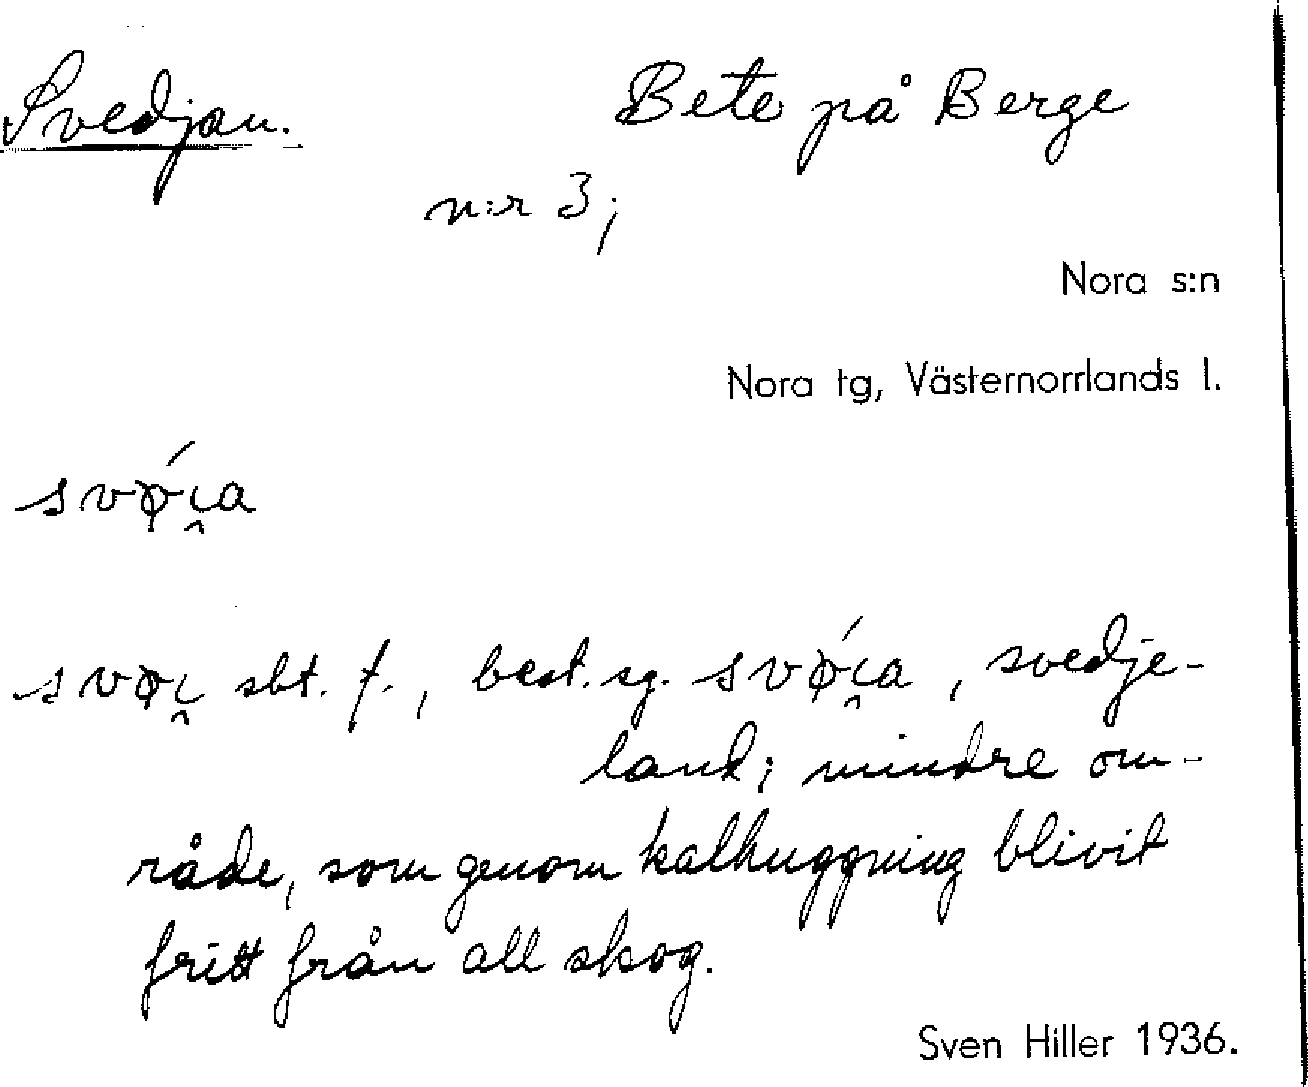 Svedjan. Bete på Berge
n:r 3;
Nora s:n
Nora tg, Västernorrlands l.
svǿi̯a
svøi̯ sbt. f., best. sg. svǿi̯a, svedje-
land; mindre om-
råde, som genom kalhuggning blivit
fritt från all skog.
Sven Hiller 1936.